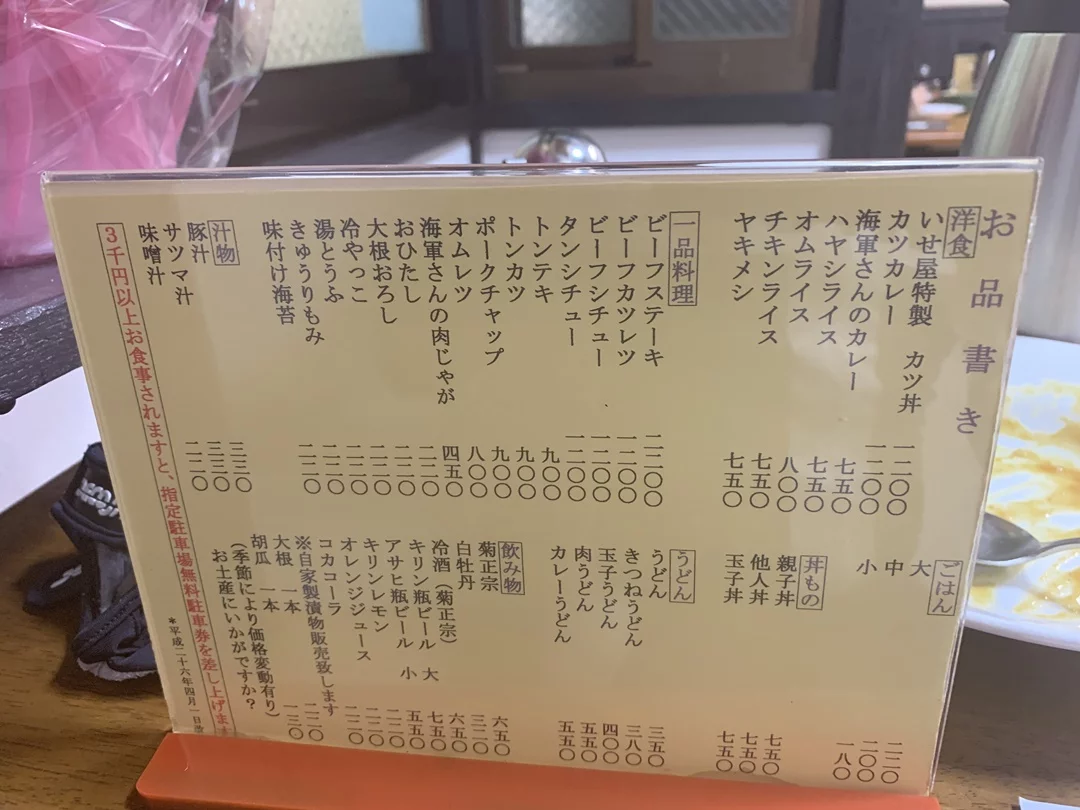 お品書き
洋食
いせ屋特製 カツ丼 一二〇〇
カツカレー 一二〇〇
海軍さんのカレー 七五〇
ハヤシライス 七五〇
オムライス 八〇〇
チキンライス 七五〇
ヤキメシ 七五〇
一品料理
ビーフステーキ 二二〇〇
ビーフカツレツ 一二〇〇
ビーフシチュー 一二〇〇
タンシチュー 一二〇〇
トンテキ 九〇〇
トンカツ 九〇〇
ポークチャップ 九〇〇
オムレツ 八〇〇
海軍さんの肉じゃが 四五〇
おひたし 二二〇
大根おろし 二二〇
冷やっこ 二二〇
湯とうふ 二二〇
きゅうりもみ 二二〇
味付け海苔 二二〇
汁物
豚汁 三三〇
サツマ汁 三三〇
味噌汁 二二〇
ごはん
大 二二〇
中 二〇〇
小 一八〇
丼もの
親子丼 七五〇
他人丼 七五〇
玉子丼 七五〇
うどん
うどん 三五〇
きつねうどん 三八〇
玉子うどん 四〇〇
肉うどん 五五〇
カレーうどん 五五〇
飲み物
菊正宗 六五〇
白牡丹 三二〇
冷酒(菊正宗) 六五〇
キリン瓶ビール 大 七五〇
アサヒ瓶ビール 小 五五〇
キリンレモン 二二〇
オレンジジュース 二二〇
コカコーラ 二二〇
※自家製漬物販売致します
大根 一本 二二〇
胡瓜 一本 一三〇
(季節により価格変動有り)
お土産にいかがですか?
3千円以上お食事されますと、指定駐車場無料駐車券を差し上げま
*平成二十六年四月一日改